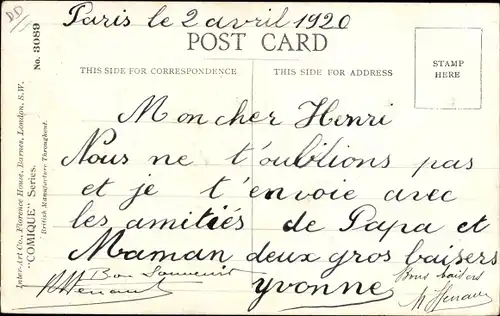 DD
Paris le 2 avril 1920
POST CARD
THIS SIDE FOR CORRESPONDENCE
THIS SIDE FOR ADDRESS
STAMP
HERE
Inter-Art Co., Florence House, Barnes, London, S.W.
"COMIQUE" Series.
British Manufacture Throughout.
No. 3089
Mon cher Henri
Nous ne t'oublions pas
et je t'envoie avec
les amitiés de Papa et
Maman deux gros baisers
Yvonne
Bon Souvenir
Bons baisers